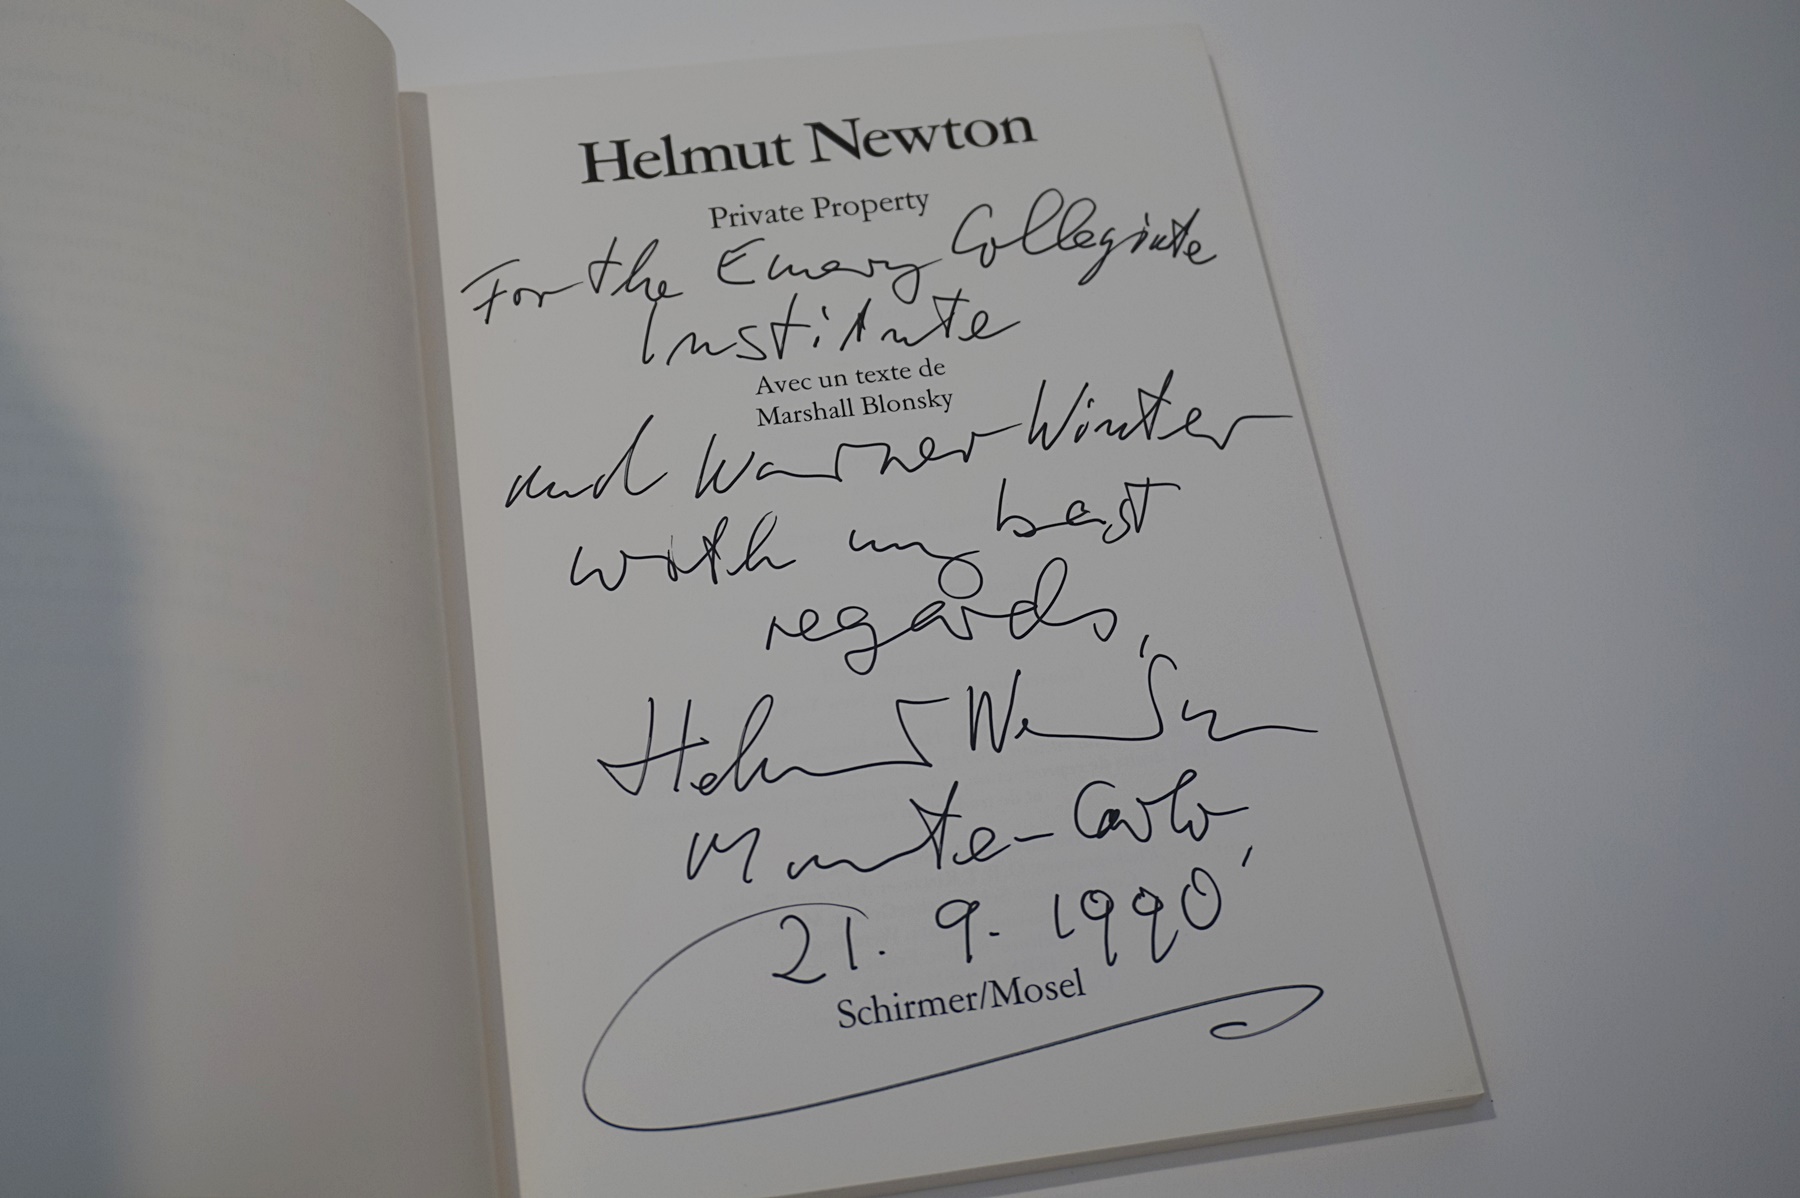 Helmut Newton
Private Property
For the Emery Collegiate
Institute
Avec un texte de
Marshall Blonsky
and Warner Winter
with my best
regards,
Helmut Newton
Monte-Carlo,
21. 9. 1990
Schirmer/Mosel